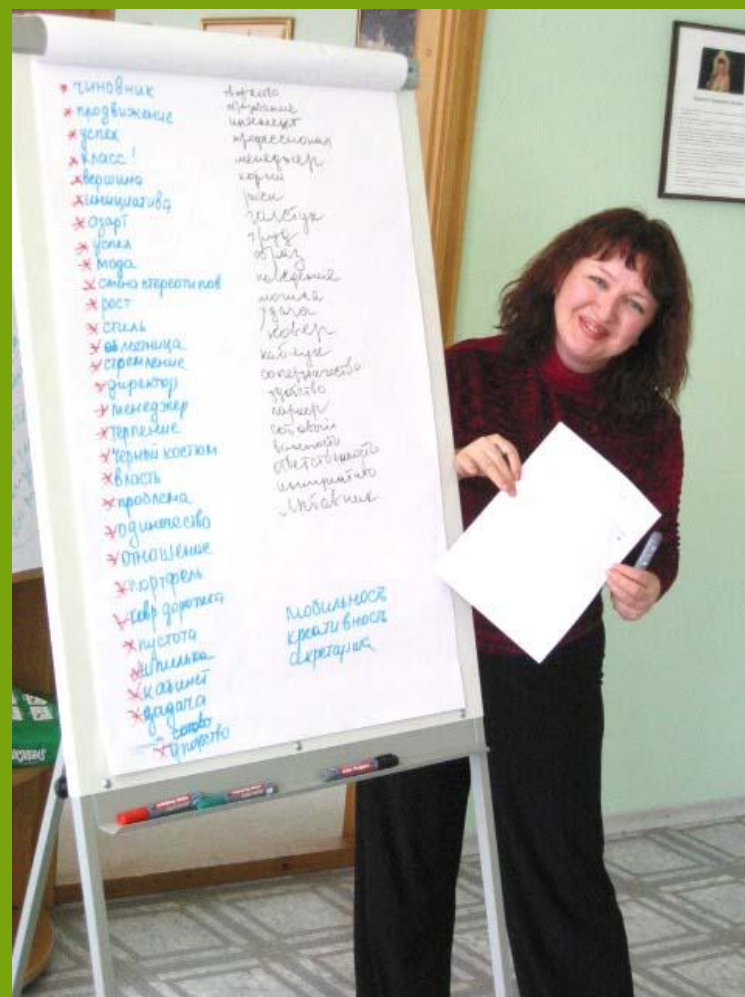 * чиновник
* продвижение
* успех
* класс!
* вершина
* инициатива
* азарт
* успел
* мода
* смена стереотипов
* рост
* стиль
* лестница
* стремление
* директор
* менеджер
* терпение
* чёрный костюм
* власть
* проблема
* одиночество
* отношение
* портфель
* ковр дорожка
* пустота
* шпилька
* кабинет
* задача
* упорство
образование
интеллект
профессионал
менеджер
корпи
риск
галстук
труд
образ
поведения
удача
ковер
каблук
соперничество
удобство
карьер
сотовый
важность
ответственность
мобильность
креативность
секретарша